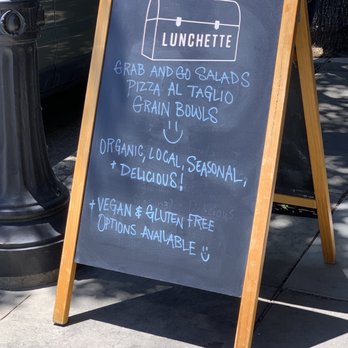 LUNCHETTE
GRAB AND GO SALADS
PIZZA AL TAGLIO
GRAIN BOWLS
ORGANIC, LOCAL, SEASONAL,
+ DELICIOUS!
+ VEGAN & GLUTEN FREE
OPTIONS AVAILABLE